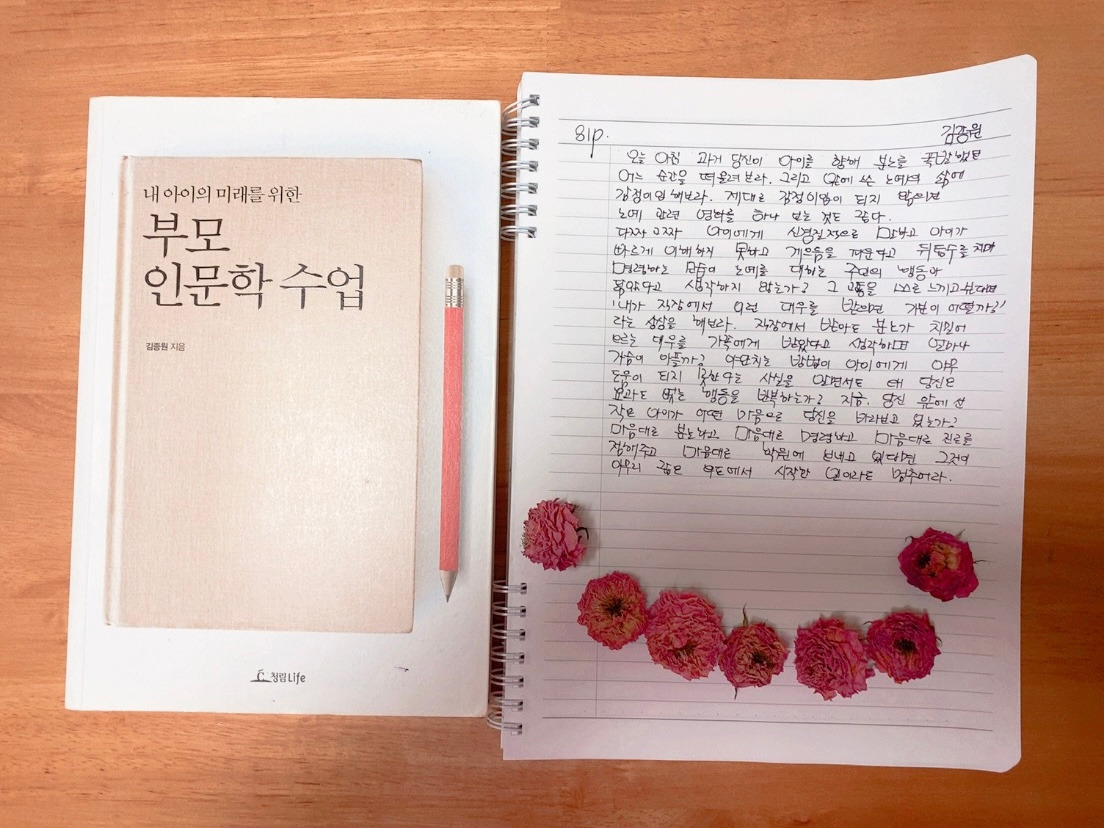 내 아이의 미래를 위한
부모
인문학 수업
김종원 지음
청림Life
81p.
김종원
오늘 아침 과거 당신이 아이를 향해 분노를 폭발했던
어느 순간을 떠올려보라. 그리고 앞에 쓴 노예의 삶에
감정이입 해보라. 제대로 감정이입이 되지 않으면
노예 관련 영화를 하나 보는 것도 좋다.
다짜고짜 아이에게 신경질적으로 말하고 아이가
빠르게 이해하지 못하고 게으름을 피운다고 뒤통수를 치며
명령하는 모습이 노예를 대하는 주인의 행동과
닮았다고 생각하지 않는가? 그 고통을 스스로 느끼고 싶다면
'내가 직장에서 이런 대우를 받으면 기분이 어떨까?'
라는 상상을 해보라. 직장에서 받아도 분노가 치밀어
오르는 대우를 가족에게 받았다고 생각하면 얼마나
가슴이 아플까? 야단치는 방법이 아이에게 아무
도움이 되지 못한다는 사실을 알면서도 왜 당신은
효과도 없는 행동을 반복하는가? 지금, 당신 앞에 선
작은 아이가 어떤 마음으로 당신을 바라보고 있는가?
마음대로 분노하고 마음대로 명령하고 마음대로 진로를
정해주고 마음대로 학원에 보내고 있다면 그것이
아무리 좋은 의도에서 시작한 일이라도 멈추어라.